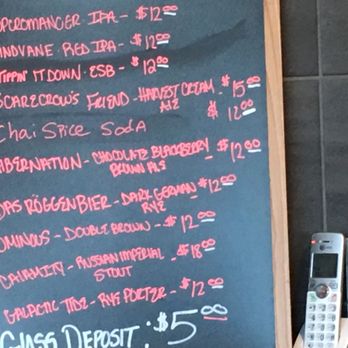 OPCROMANCER IPA - $12.00
INDVANE RED IPA - $12.00
TIPPIN' IT DOWN - ESB - $12.00
SCARECROW'S FRIEND - HARVEST CREAM ALE $15.00
$12.00
Chai Spice Soda
IBERNATION - CHOCOLATE BLACKBERRY BROWN ALE - $12.00
DAS RÖGGENBIER - DARK GERMAN RYE $12.00
OMINOUS - DOUBLE BROWN - $12.00
CALAMITY - RUSSIAN IMPERIAL STOUT - $18.00
GALACTIC TIDE - RYE PORTER - $12.00
GLASS DEPOSIT : $5.00